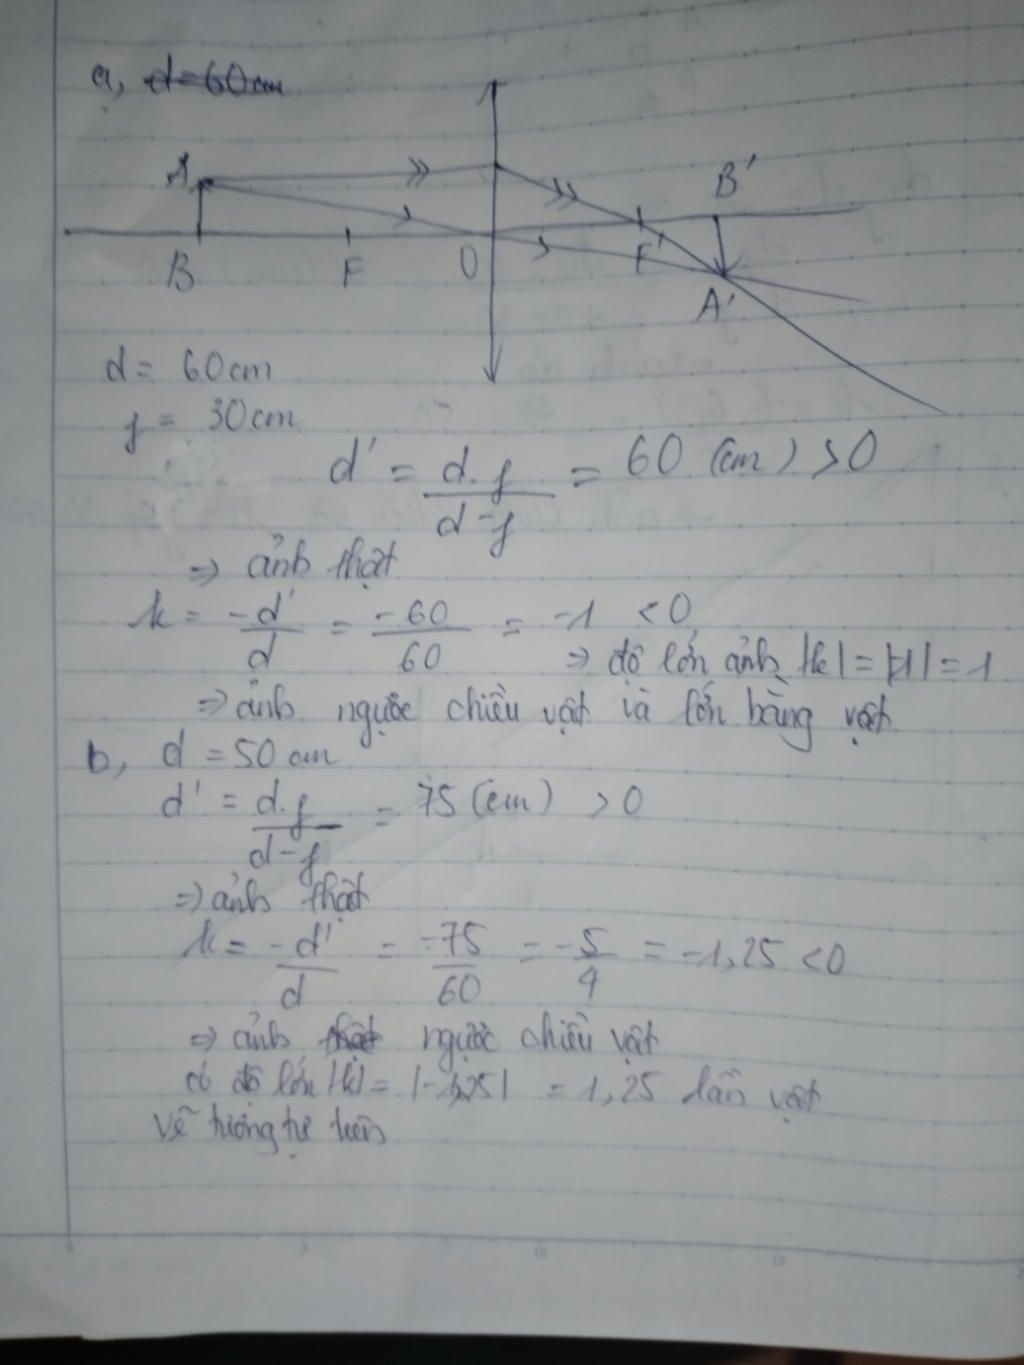 a, d=60cm
A B'
B F O F' A'
d = 60cm
f = 30cm
d' = d.f / d-f = 60 (cm) >0
⇒ ảnh thật
k = -d' / d = -60 / 60 = -1 <0
⇒ độ lớn ảnh |k| = |-1| = 1
⇒ ảnh ngược chiều vật và lớn bằng vật
b, d = 50 cm
d' = d.f / d-f = 75 (cm) >0
⇒ ảnh thật
k = -d' / d = -75 / 60 = -5 / 4 = -1,25 <0
⇒ ảnh thật ngược chiều vật
có độ lớn |k| = |-1,25| = 1,25 lần vật
vẽ tương tự trên
0 5 10 15